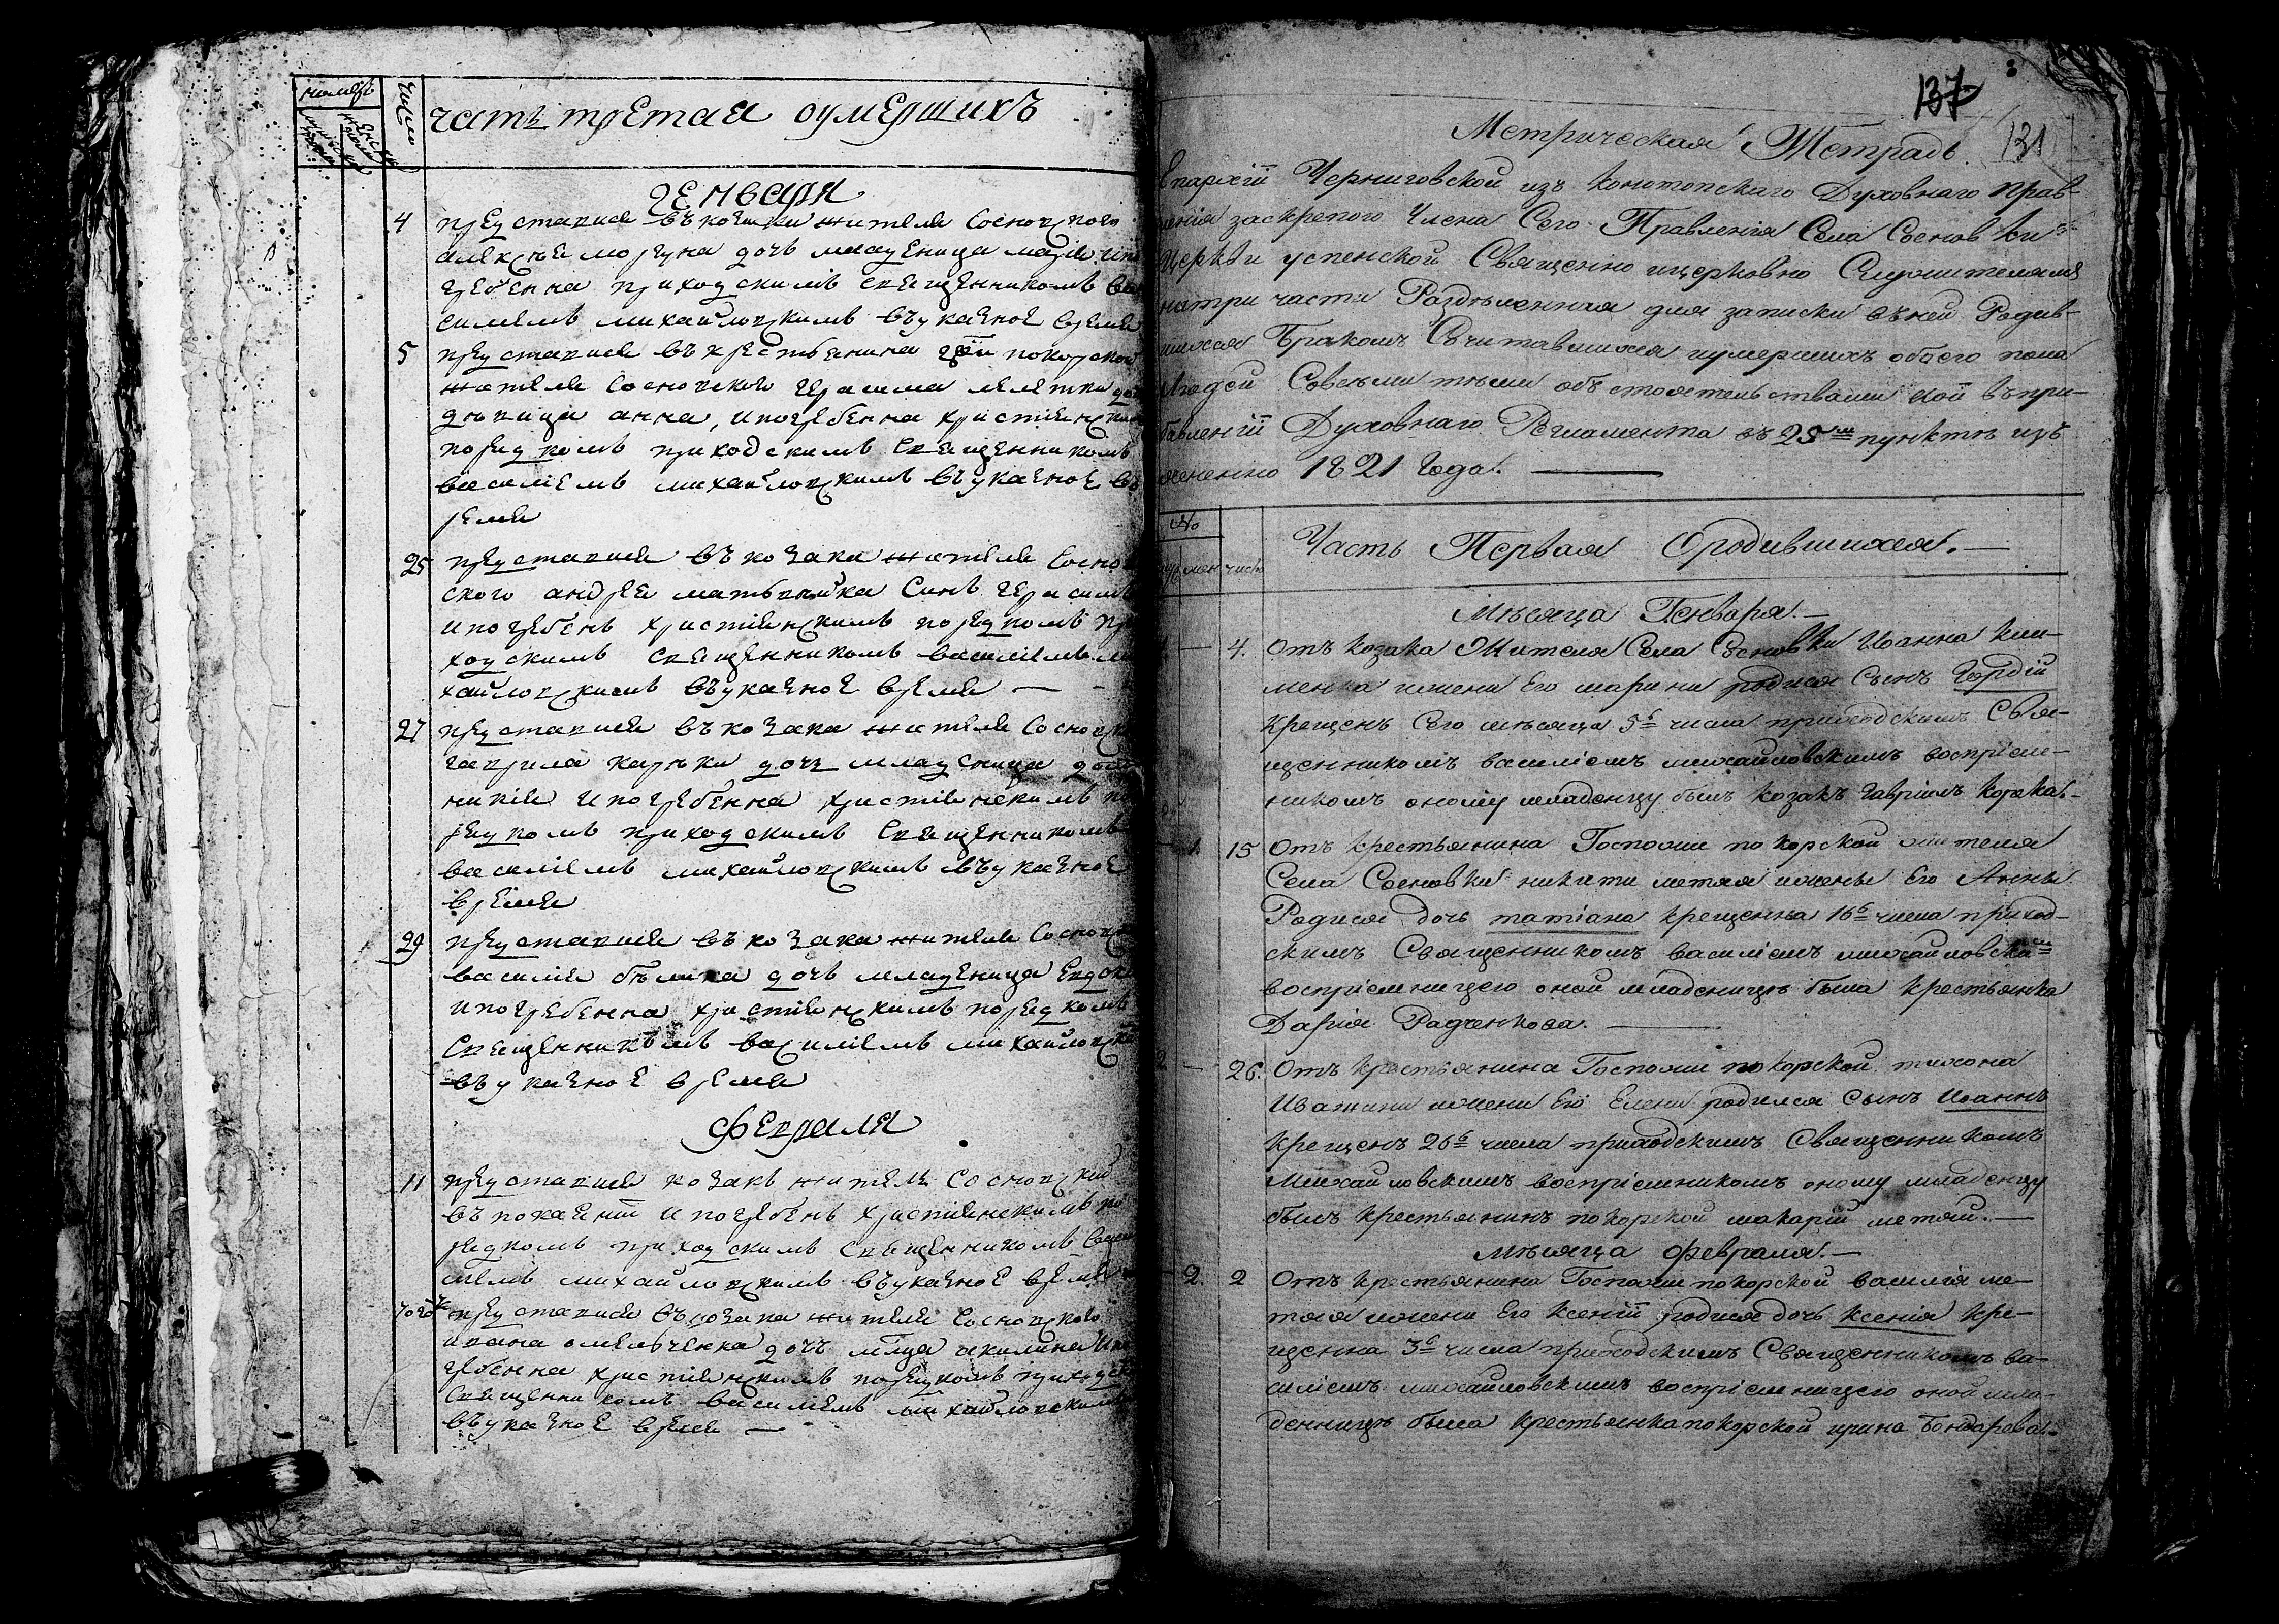 номеръ
число
часть третая оумершихъ
генваря
4 представися въ козака жителя Сосновского
алексея моруна дочь младеница
гребенна приходскимъ священникомъ Ва
силиемъ михайловскимъ въ указное время
5 представися въ крестьянина гжи покорской
жителя Сосновского герасима
девица анна, и погребенна христиенским
порядкомъ приходскимъ священникомъ
василиемъ михайловскимъ въ указное в
ремя
25 представися въ козака жителя Соснов
ского андрея сынъ герасимъ
и погребенъ христиенскимъ порядкомъ при
ходскимъ священникомъ василиемъ ми
хайловскимъ въ указное время —
27 представися въ козака жителя Сосновск
гаврила коржа дочь младеница дом
никия и погребенна христиенскимъ по
рядкомъ приходскимъ священникомъ
василиемъ михайловскимъ въ указное
время
29 представися въ козака жителя Сосновск
василия дочь младеница Евдоки
и погребенна христиенскимъ порядкомъ
священникомъ василиемъ михайловски
въ указное время
Февраля
11 представися козакъ житель Сосновский
въ покаянии и погребенъ христиенскимъ по
рядкомъ приходскимъ священникомъ Васи
лиемъ михайловскимъ въ указное время
представися въ козака жителя Сосновского
ивана омельченка дочь мл҃ца акилина и по
гребенна христиенскимъ порядкомъ приходск
священникомъ василиемъ михайловскимъ
въ указное время —
137
131
Метрическая Тетрадь.
Епархіи Черниговской изъ Конотопскаго Духовнаго Прав-
ленія заскрепого Члена Сего Правленія Села Сосновки
Церкви успенской Священно ицерковно Служителямъ
натри части Разделенная для записки въней Родив-
шихся Бракомъ Сочитавшихся иумершихъ обоего пола
Людей Совсеми теми обстоятельствами кои въпри-
бавленіи Духовнаго Регламента въ 25мъ пункте изъ
ясненно 1821 Года. —
№
число
Часть Первая Ородившихся. —
Мѣсяца Генваря. —
1 — 4. Отъ козака Жителя Села Сосновки Иоанна Кли-
менка ижени Его марини родися Сынъ Гордій
крещенъ Сего мѣсяца 5г числа приходскимъ Свя-
щенникомъ василіемъ михайловскимъ воспріем-
никомъ оному младенцу былъ козакъ Гавріилъ Коржа. -
— 1. 15 Отъ крестьянина Госпожи покорской жителя
Села Сосновки никити метлая ижены Его Анны
Родися дочь татіана крещенна 16г числа приход-
скимъ Священникомъ василіемъ михайловскимъ
воспріемницею оной младеницѣ была крестьянка
Дарія Радченкова. —
2 — 26. Отъ Крестьянина Госпожи покорской тихона
ижени Его Елени родился Сынъ Иоаннъ
крещенъ 26г числа приходскимъ Священникомъ
Михайловскимъ воспріемникомъ оному младенцу
былъ крестьянинъ покорской макарій метлай. —
Мѣсяца Февраля. —
— 2. 2 Отъ Крестьянина Госпожи покорской василія ме-
тлая ижени Его Ксеніи родися дочь Ксенія кре-
щенна 3г числа приходскимъ Священникомъ ва-
силіемъ михайловскимъ воспріемницею оной мла-
денницѣ была крестьянка покорской ирина Бондарева. -